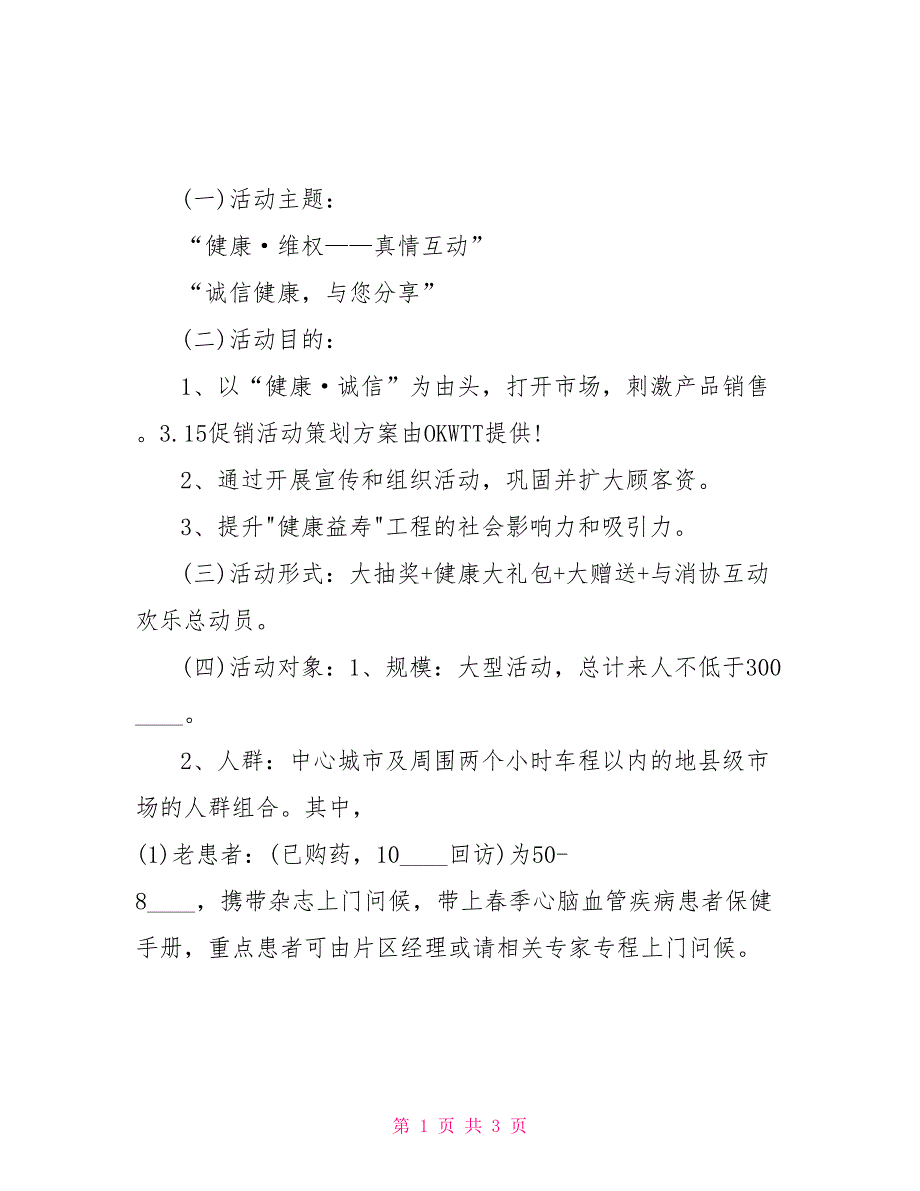 (一)活动主题：
“健康·维权——真情互动”
“诚信健康，与您分享”
(二)活动目的：
1、以“健康·诚信”为由头，打开市场，刺激产品销售
。3.15促销活动策划方案由OKWTT提供!
2、通过开展宣传和组织活动，巩固并扩大顾客资。
3、提升"健康益寿"工程的社会影响力和吸引力。
(三)活动形式：大抽奖+健康大礼包+大赠送+与消协互动
欢乐总动员。
(四)活动对象：1、规模：大型活动，总计来人不低于300
____。
2、人群：中心城市及周围两个小时车程以内的地县级市
场的人群组合。其中，
(1)老患者：(已购药，10____回访)为50-
8____，携带杂志上门问候，带上春季心脑血管疾病患者保健
手册，重点患者可由片区经理或请相关专家专程上门问候。
第 1 页 共 3 页